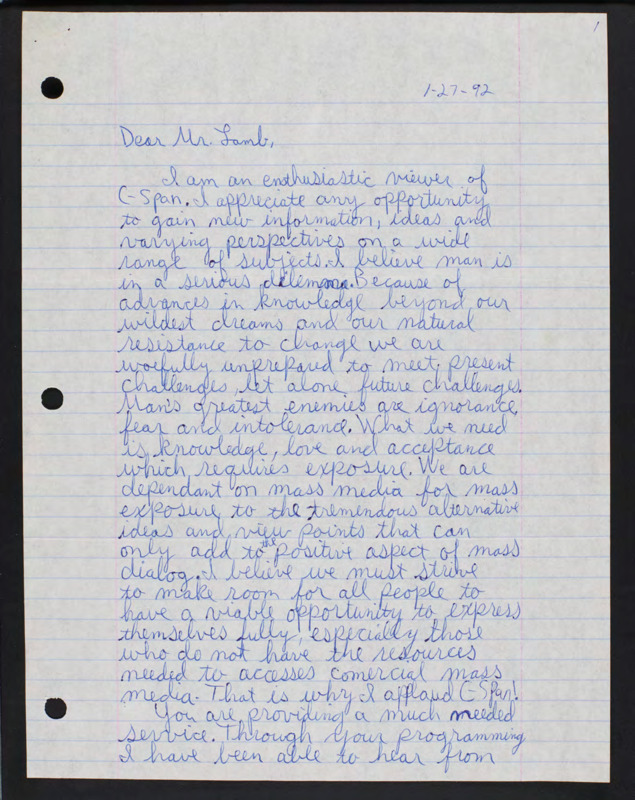 1
1-27-92
Dear Mr. Lamb,
I am an enthusiastic viewer of
C-Span. I appreciate any opportunity
to gain new information, ideas and
varying perspectives on a wide
range of subjects. I believe man is
in a serious dilemma. Because of
advances in knowledge beyond our
wildest dreams and our natural
resistance to change we are
woefully unprepared to meet present
challenges, let alone future challenges.
Man's greatest enemies are ignorance,
fear and intolerance. What we need
is knowledge, love and acceptance
which requires exposure. We are
dependant on mass media for mass
exposure to the tremendous alternative
ideas and view points that can
only add to the positive aspect of mass
dialog. I believe we must strive
to make room for all people to
have a viable opportunity to express
themselves fully, especially those
who do not have the resources
needed to accesses comercial mass
media. That is why I applaud C-Span!
You are providing a much needed
service. Through your programming
I have been able to hear from